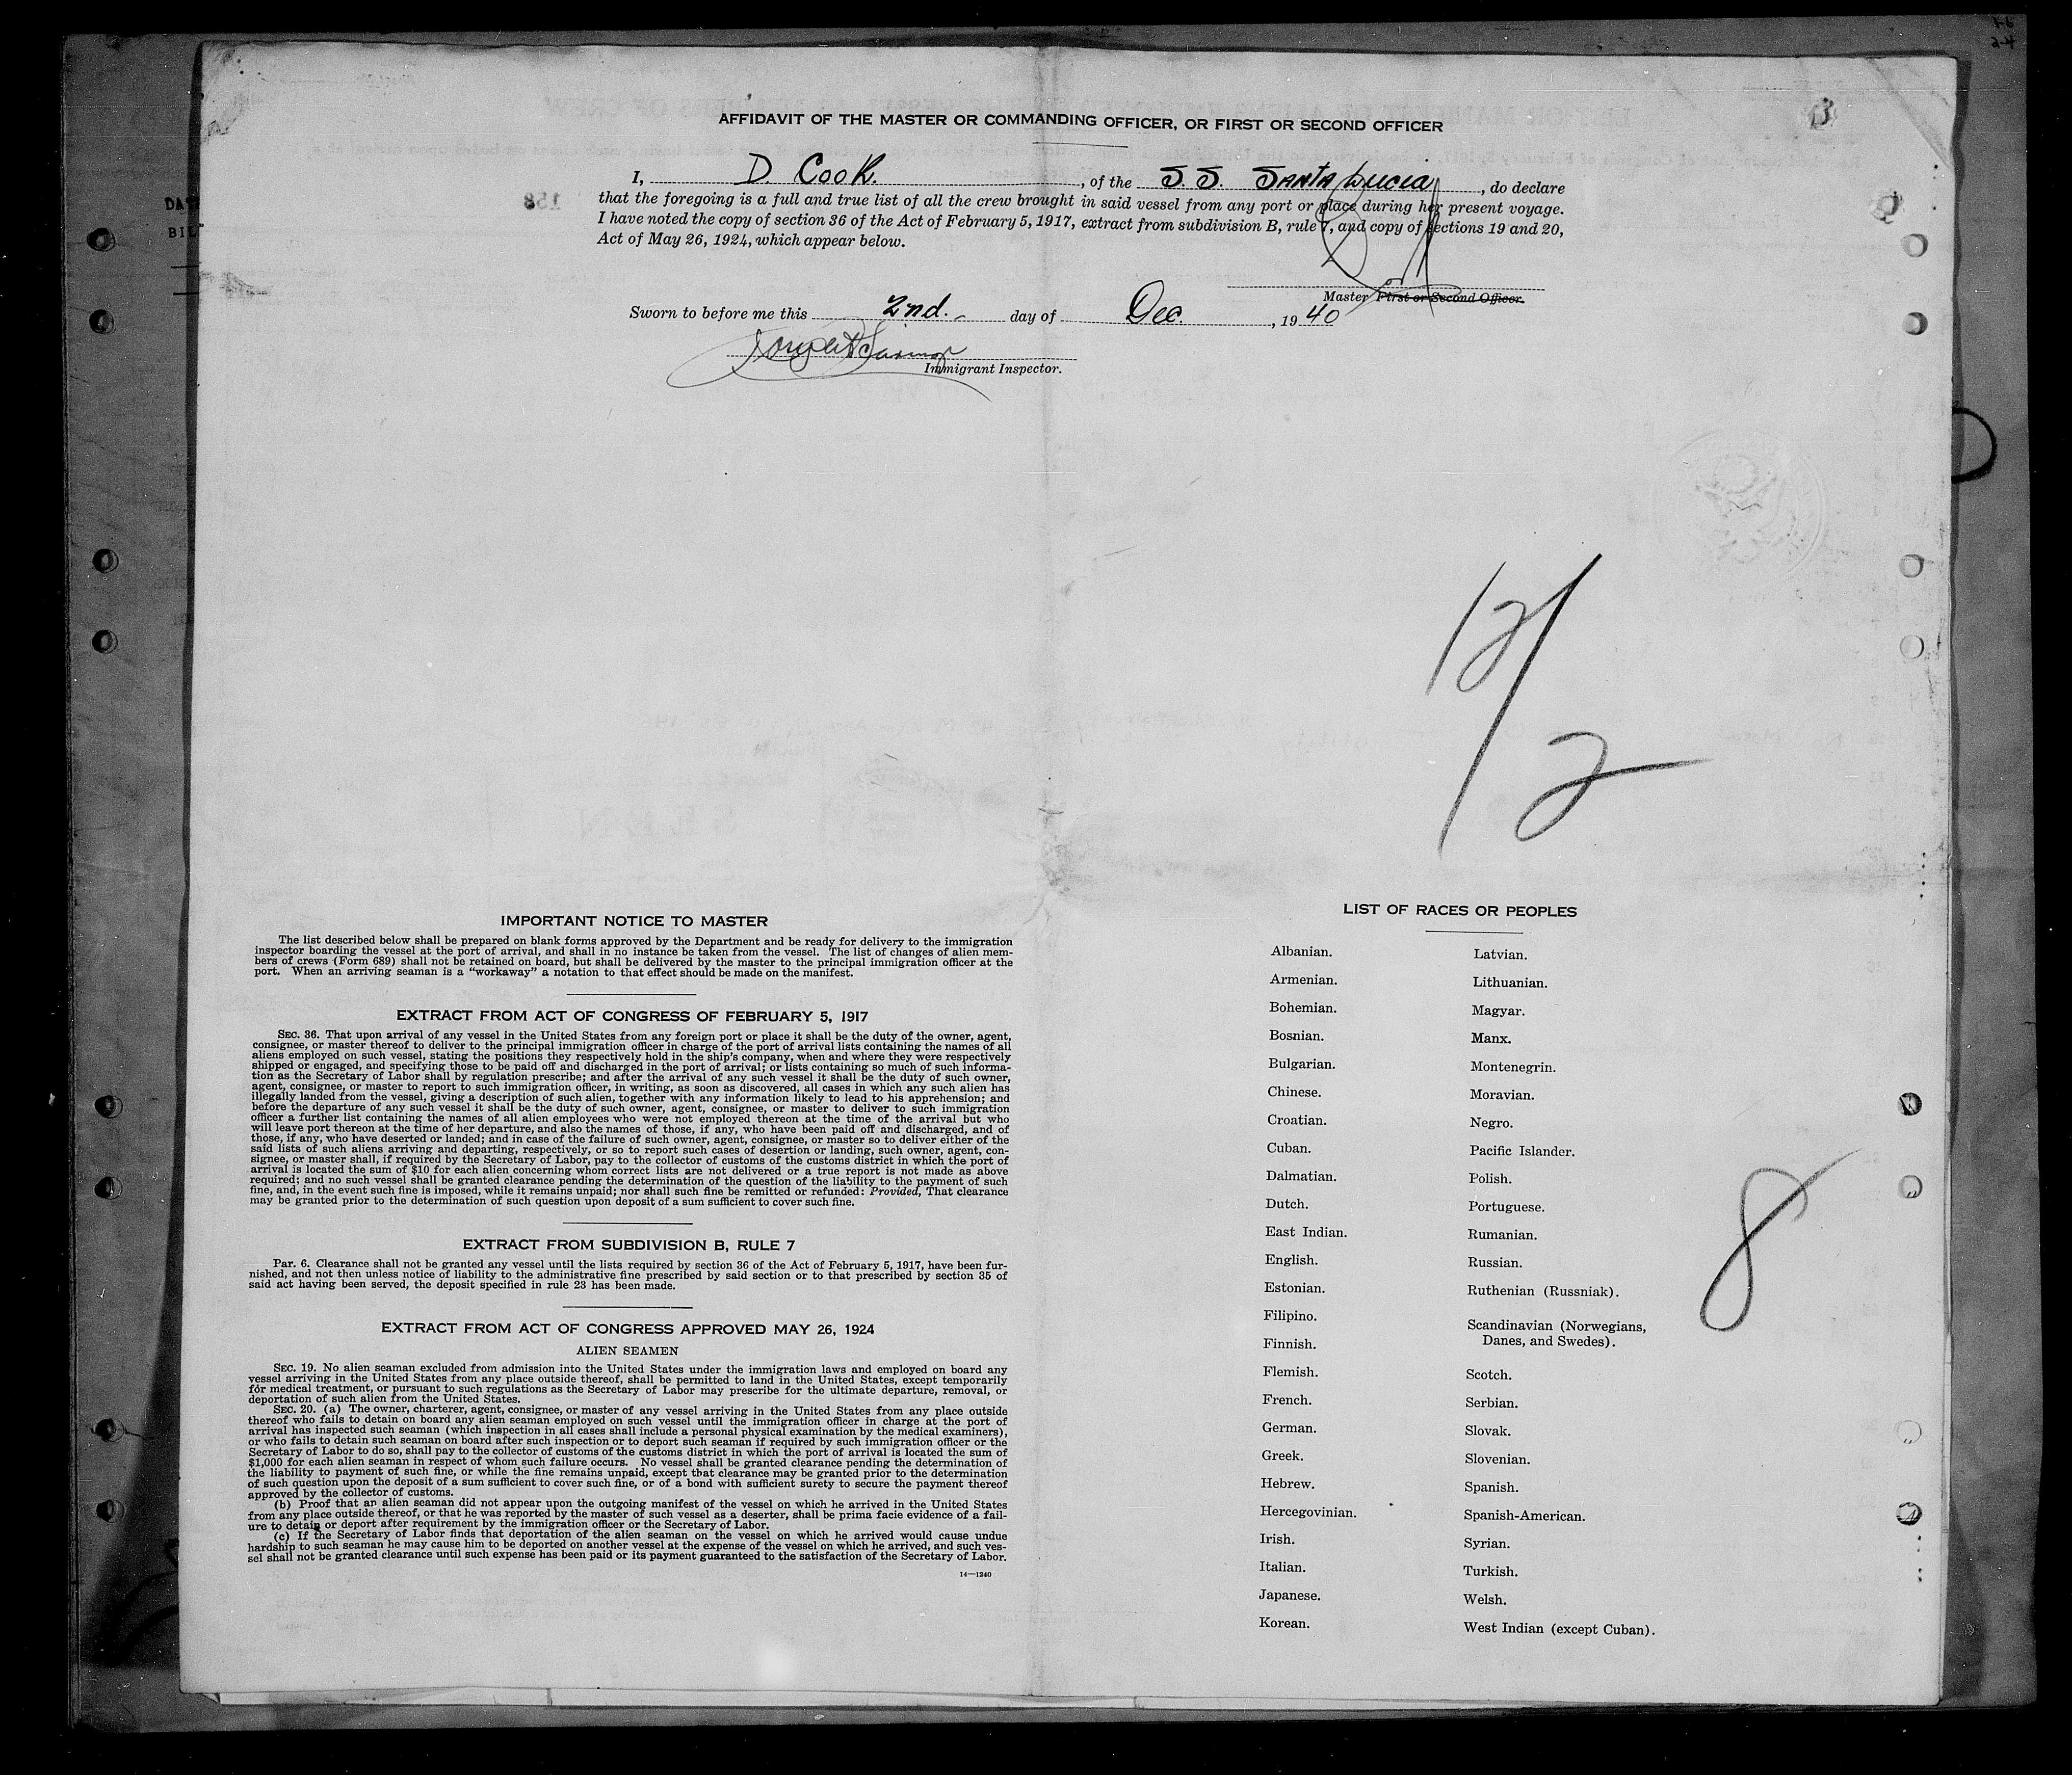 AFFIDAVIT OF THE MASTER OR COMMANDING OFFICER, OR FIRST OR SECOND OFFICER
I, D. Cook. , of the S.S. SANTA LUCIA , do declare
that the foregoing is a full and true list of all the crew brought in said vessel from any port or place during her present voyage.
I have noted the copy of section 36 of the Act of February 5, 1917, extract from subdivision B, rule 7, and copy of sections 19 and 20,
Act of May 26, 1924, which appear below.
Master First or Second Officer.
Sworn to before me this 2nd. day of Dec. , 19 40
Immigrant Inspector.
158
12/2
IMPORTANT NOTICE TO MASTER
The list described below shall be prepared on blank forms approved by the Department and be ready for delivery to the immigration
inspector boarding the vessel at the port of arrival, and shall in no instance be taken from the vessel. The list of changes of alien mem-
bers of crews (Form 689) shall not be retained on board, but shall be delivered by the master to the principal immigration officer at the
port. When an arriving seaman is a "workaway" a notation to that effect should be made on the manifest.
EXTRACT FROM ACT OF CONGRESS OF FEBRUARY 5, 1917
SEC. 36. That upon arrival of any vessel in the United States from any foreign port or place it shall be the duty of the owner, agent,
consignee, or master thereof to deliver to the principal immigration officer in charge of the port of arrival lists containing the names of all
aliens employed on such vessel, stating the positions they respectively hold in the ship's company, when and where they were respectively
shipped or engaged, and specifying those to be paid off and discharged in the port of arrival; or lists containing so much of such informa-
tion as the Secretary of Labor shall by regulation prescribe; and after the arrival of any such vessel it shall be the duty of such owner,
agent, consignee, or master to report to such immigration officer, in writing, as soon as discovered, all cases in which any such alien has
illegally landed from the vessel, giving a description of such alien, together with any information likely to lead to his apprehension; and
before the departure of any such vessel it shall be the duty of such owner, agent, consignee, or master to deliver to such immigration
officer a further list containing the names of all alien employees who were not employed thereon at the time of the arrival but who
will leave port thereon at the time of her departure, and also the names of those, if any, who have been paid off and discharged, and of
those, if any, who have deserted or landed; and in case of the failure of such owner, agent, consignee, or master so to deliver either of the
said lists of such aliens arriving and departing, respectively, or so to report such cases of desertion or landing, such owner, agent, con-
signee, or master shall, if required by the Secretary of Labor, pay to the collector of customs of the customs district in which the port of
arrival is located the sum of $10 for each alien concerning whom correct lists are not delivered or a true report is not made as above
required; and no such vessel shall be granted clearance pending the determination of the question of the liability to the payment of such
fine, and, in the event such fine is imposed, while it remains unpaid; nor shall such fine be remitted or refunded: Provided, That clearance
may be granted prior to the determination of such question upon deposit of a sum sufficient to cover such fine.
EXTRACT FROM SUBDIVISION B, RULE 7
Par. 6. Clearance shall not be granted any vessel until the lists required by section 36 of the Act of February 5, 1917, have been fur-
nished, and not then unless notice of liability to the administrative fine prescribed by said section or to that prescribed by section 35 of
said act having been served, the deposit specified in rule 23 has been made.
EXTRACT FROM ACT OF CONGRESS APPROVED MAY 26, 1924
ALIEN SEAMEN
SEC. 19. No alien seaman excluded from admission into the United States under the immigration laws and employed on board any
vessel arriving in the United States from any place outside thereof, shall be permitted to land in the United States, except temporarily
for medical treatment, or pursuant to such regulations as the Secretary of Labor may prescribe for the ultimate departure, removal, or
deportation of such alien from the United States.
SEC. 20. (a) The owner, charterer, agent, consignee, or master of any vessel arriving in the United States from any place outside
thereof who fails to detain on board any alien seaman employed on such vessel until the immigration officer in charge at the port of
arrival has inspected such seaman (which inspection in all cases shall include a personal physical examination by the medical examiners),
or who fails to detain such seaman on board after such inspection or to deport such seaman if required by such immigration officer or the
Secretary of Labor to do so, shall pay to the collector of customs of the customs district in which the port of arrival is located the sum of
$1,000 for each alien seaman in respect of whom such failure occurs. No vessel shall be granted clearance pending the determination of
the liability to payment of such fine, or while the fine remains unpaid, except that clearance may be granted prior to the determination
of such question upon the deposit of a sum sufficient to cover such fine, or of a bond with sufficient surety to secure the payment thereof
approved by the collector of customs.
(b) Proof that an alien seaman did not appear upon the outgoing manifest of the vessel on which he arrived in the United States
from any place outside thereof, or that he was reported by the master of such vessel as a deserter, shall be prima facie evidence of a fail-
ure to detain or deport after requirement by the immigration officer or the Secretary of Labor.
(c) If the Secretary of Labor finds that deportation of the alien seaman on the vessel on which he arrived would cause undue
hardship to such seaman he may cause him to be deported on another vessel at the expense of the vessel on which he arrived, and such ves-
sel shall not be granted clearance until such expense has been paid or its payment guaranteed to the satisfaction of the Secretary of Labor.
14—1240
LIST OF RACES OR PEOPLES
Albanian.
Armenian.
Bohemian.
Bosnian.
Bulgarian.
Chinese.
Croatian.
Cuban.
Dalmatian.
Dutch.
East Indian.
English.
Estonian.
Filipino.
Finnish.
Flemish.
French.
German.
Greek.
Hebrew.
Hercegovinian.
Irish.
Italian.
Japanese.
Korean.
Latvian.
Lithuanian.
Magyar.
Manx.
Montenegrin.
Moravian.
Negro.
Pacific Islander.
Polish.
Portuguese.
Rumanian.
Russian.
Ruthenian (Russniak).
Scandinavian (Norwegians,
Danes, and Swedes).
Scotch.
Serbian.
Slovak.
Slovenian.
Spanish.
Spanish-American.
Syrian.
Turkish.
Welsh.
West Indian (except Cuban).
8